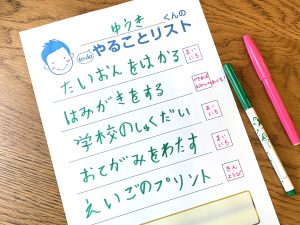 ゆうき くんの
to do やることリスト
たいおんをはかる まいにち
はみがきをする
学校のしゅくだい まいにち
おてがみをわたす まいにち
えいごのプリント きんようび